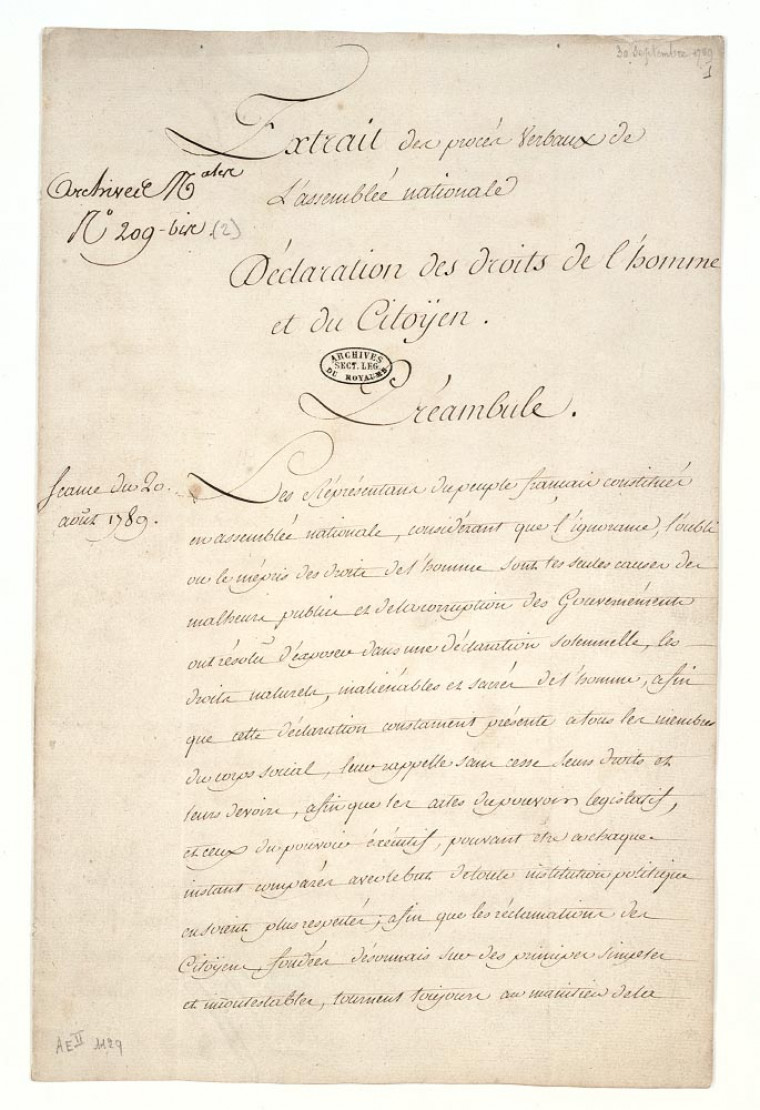 30 Septembre 1789
1
Extrait des procès Verbaux de
L'assemblée nationale
Archives
N° 209-bis (2)
Déclaration des droits de l'homme
et du Citoÿen.
ARCHIVES
SECT. LEG.
DU ROYAUME
Préambule.
Seance du 20.
août 1789.
Les Réprésentans du peuple francais constitués
en assemblée nationale, considérant que l'ignorance, l'oubli
ou le mépris des droits de l'homme sont les seules causes des
malheurs publics et de la corruption des Gouvernéments
ont résolu d'éxposer dans une déclaration solemnelle, les
droits naturels, inaliénables et sacrés de l'homme, afin
que cette déclaration constament présente a tous les membres
du corps social, leur rappelle sans cesse leurs droits et
leurs devoirs, afin que les actes du pouvoir legislatif,
et ceux du pouvoir éxécutif, pouvant être a chaque
instant comparés avec le but de toute institution politique
en soient plus respectés; afin que les réclamations des
Citoÿens, fondées désormais sur des principes simples
et incontestables, tournent toujours au maintien de la
AE II 1129